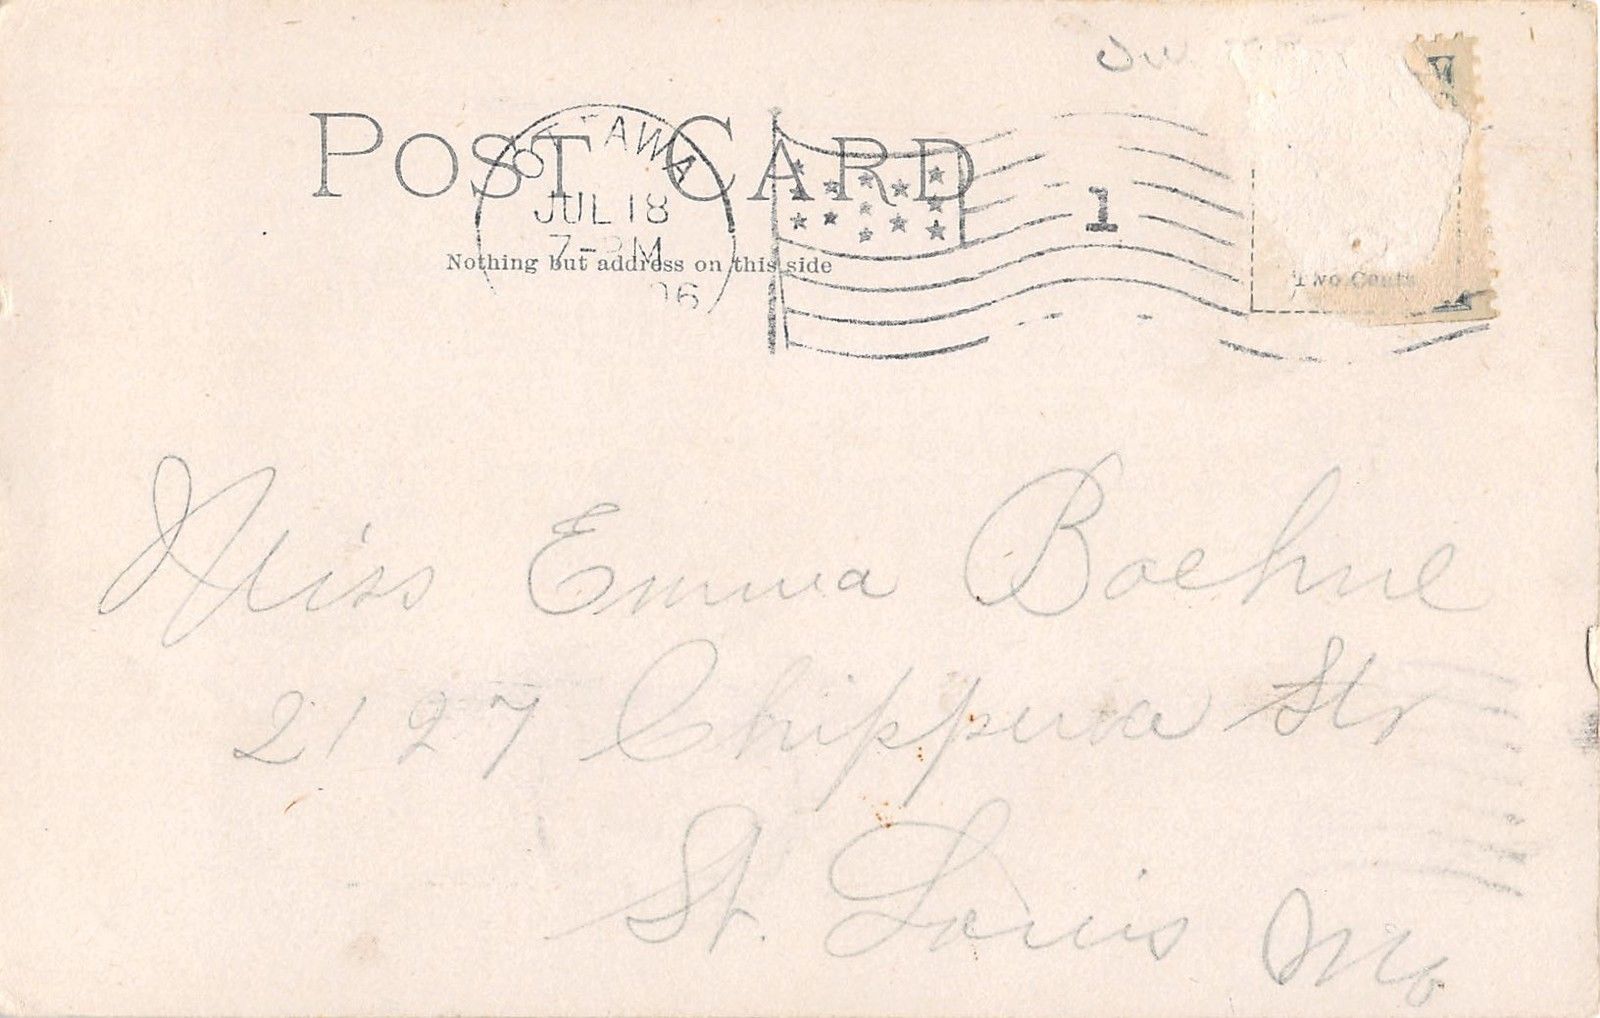 POST CARD
OTTAWA
JUL 18
7-PM
06
1
Nothing but address on this side
Two Cents
Miss Emma Boehne
2127 Chippewa Str
St. Louis Mo